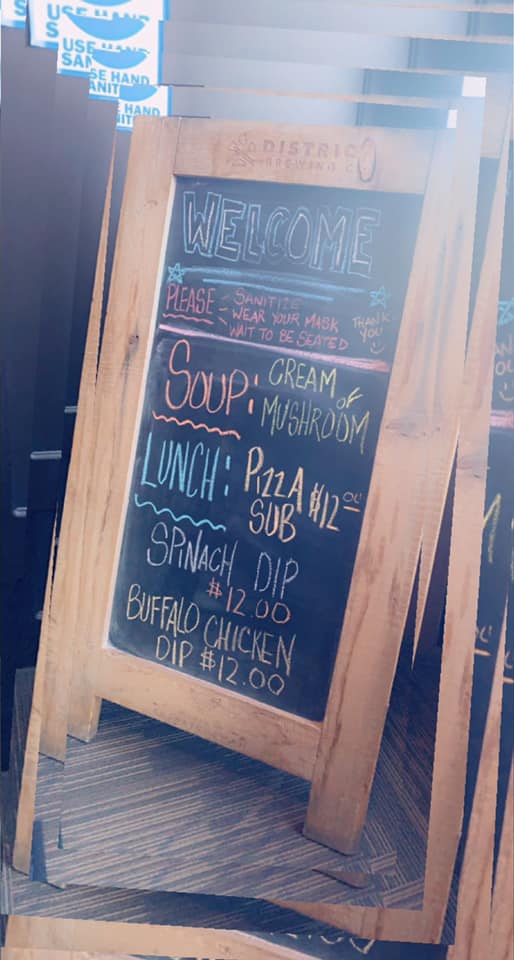 USE HAND
USE HAND
SE HAND
DISTRIC
BREWING C
WELCOME
PLEASE - SANITIZE
- WEAR YOUR MASK
WAIT TO BE SEATED
THANK
YOU
SOUP: CREAM
OF
MUSHROOM
LUNCH: PIZZA $12 00
SUB
SPINACH DIP
$12.00
BUFFALO CHICKEN
DIP $12.00